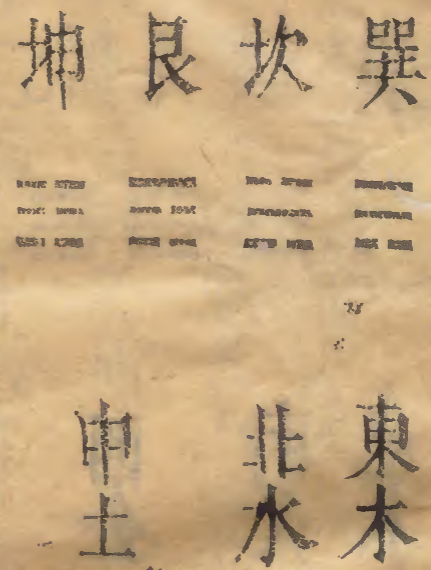 巽
坎
艮
坤
東木
北水
中土